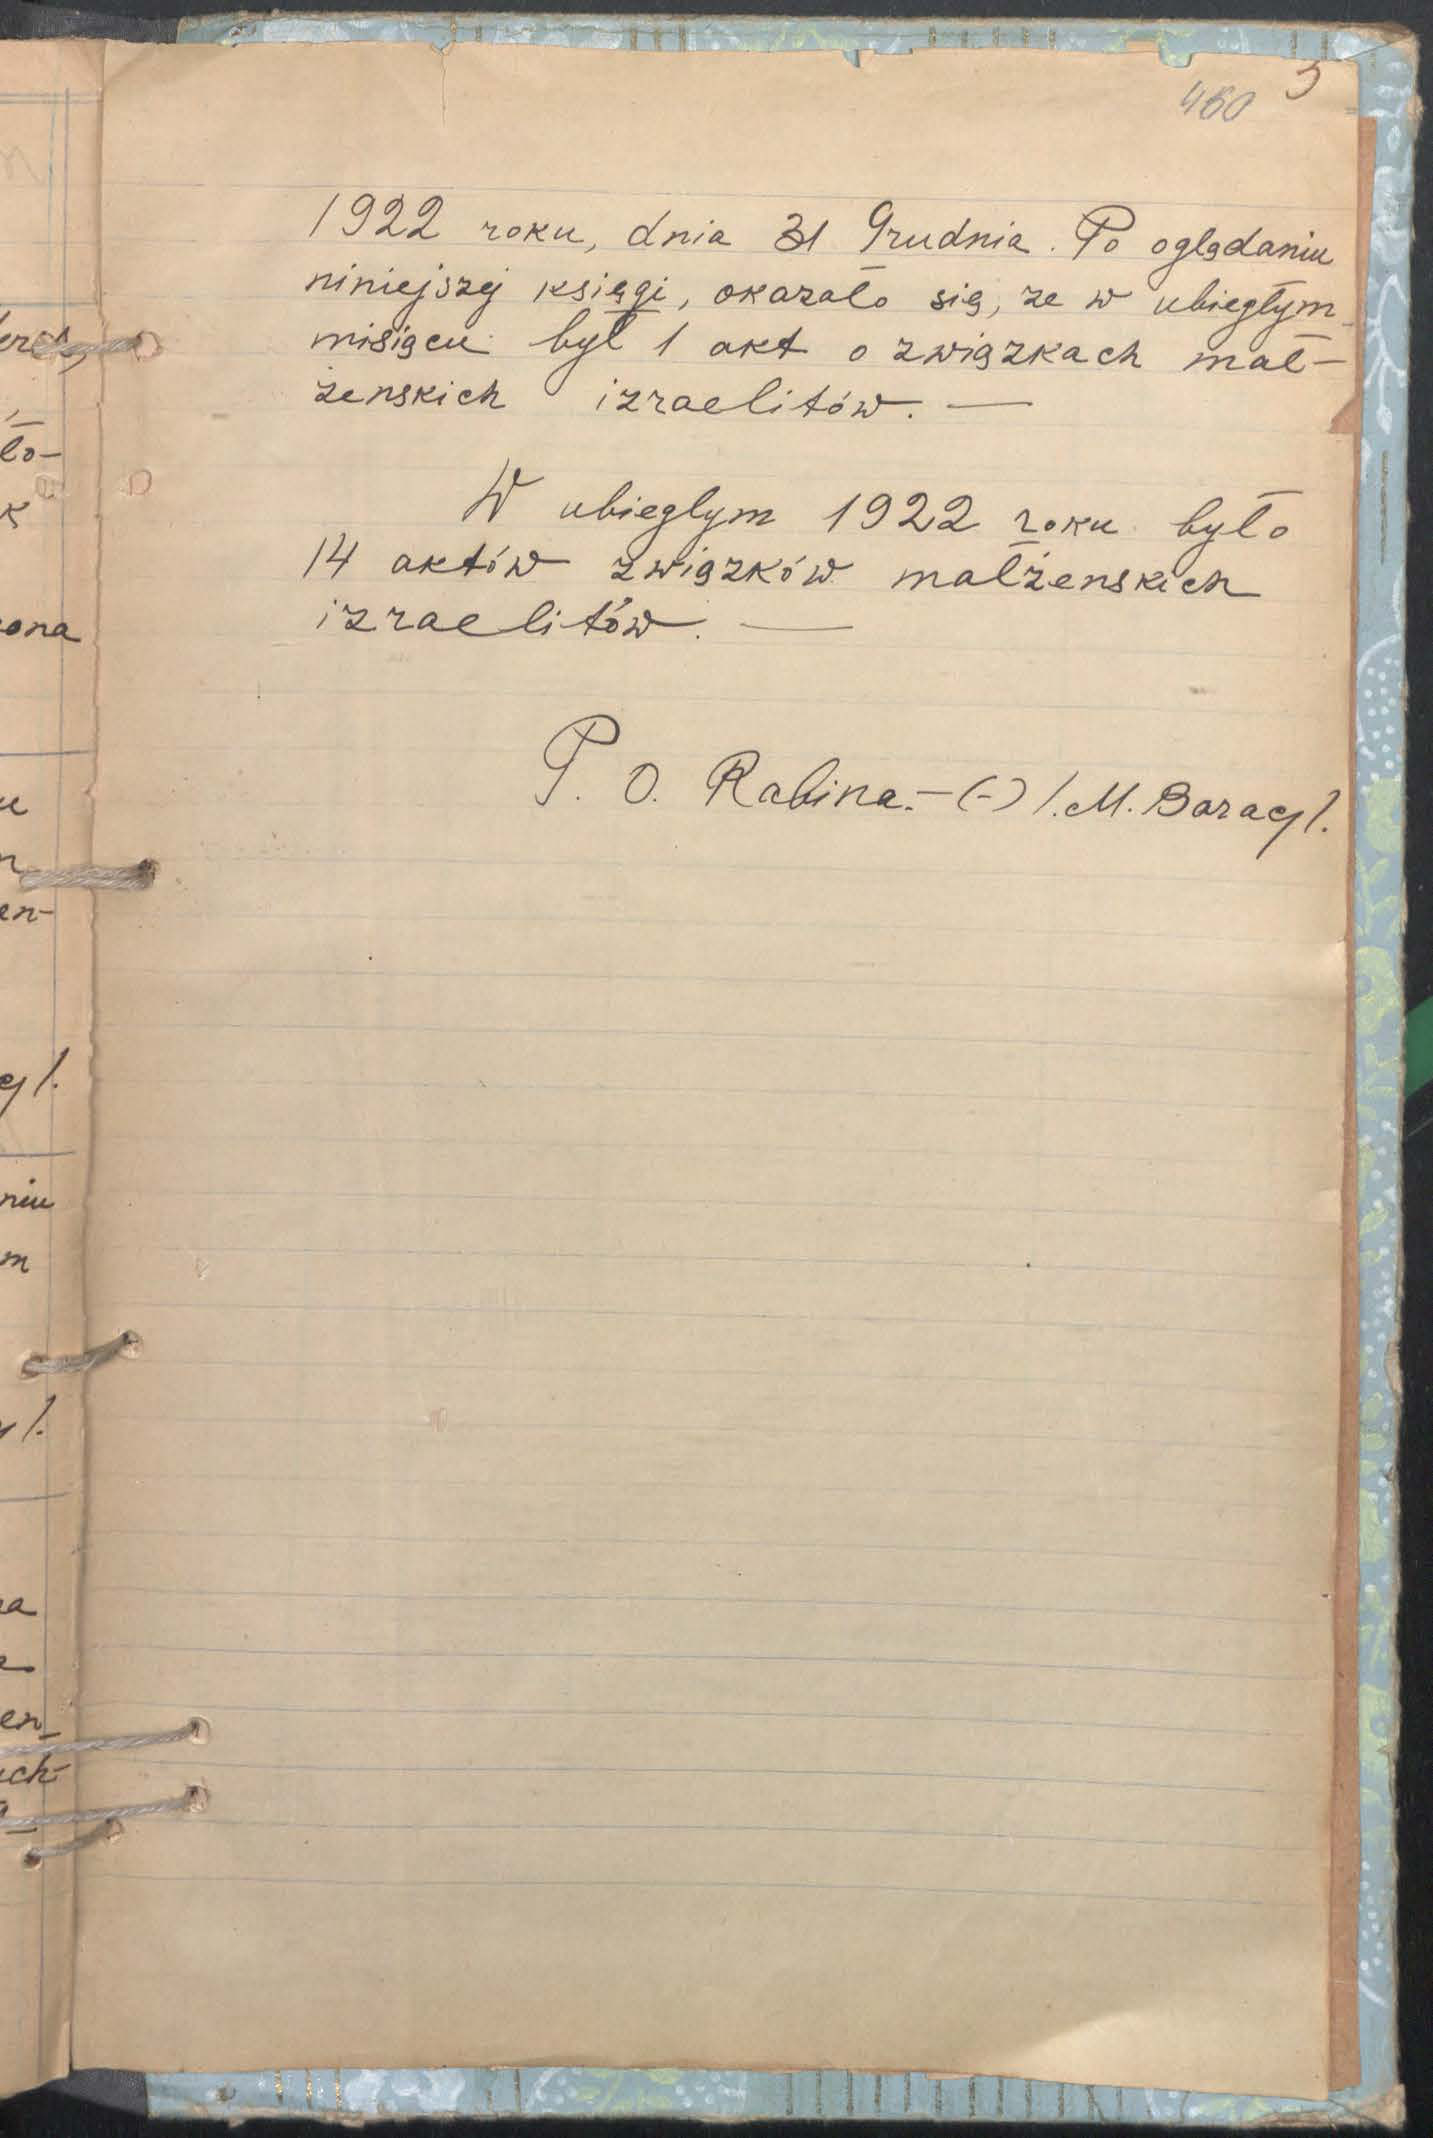 460
1922 roku, dnia 31 Grudnia. Po oglądaniu
niniejszej księgi, okazało się, ze w ubiegłym
misiącu był 1 akt o związkach mał-
żenskich izraelitów. —
W ubieglym 1922 roku było
14 aktów związków małżenskich
izraelitów. —
P. O. Rabina.- (-) /.M. Baraq/.
ło-
k
en-
niu
m
en-